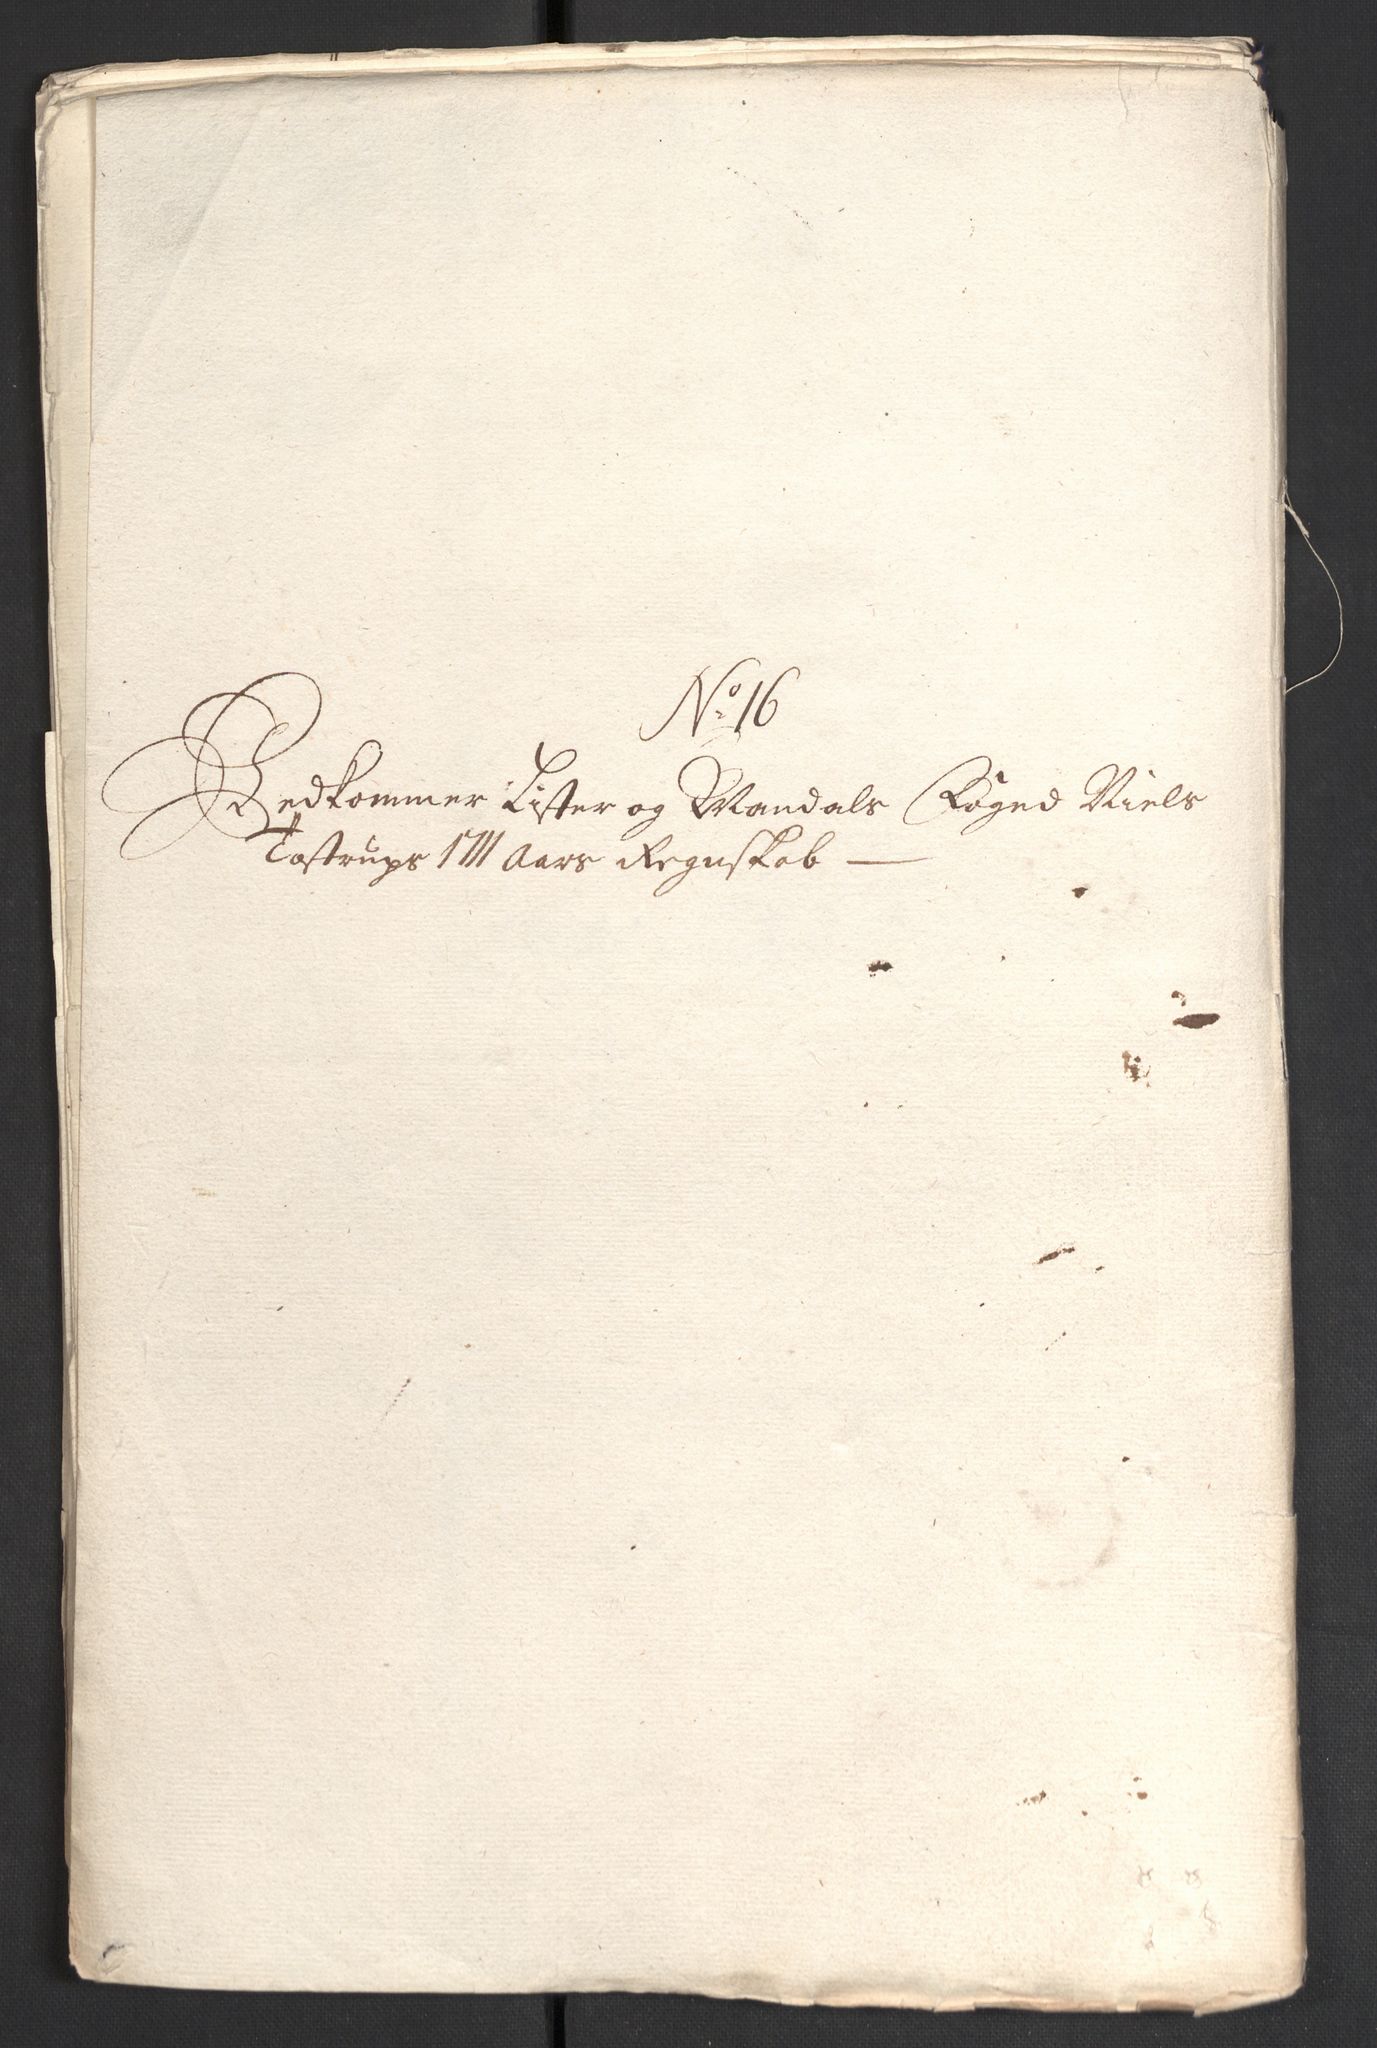 No. 16
Vedkommer Lister og Mandals Foged Niels
Tostrups 1711 Aars Regnskab —